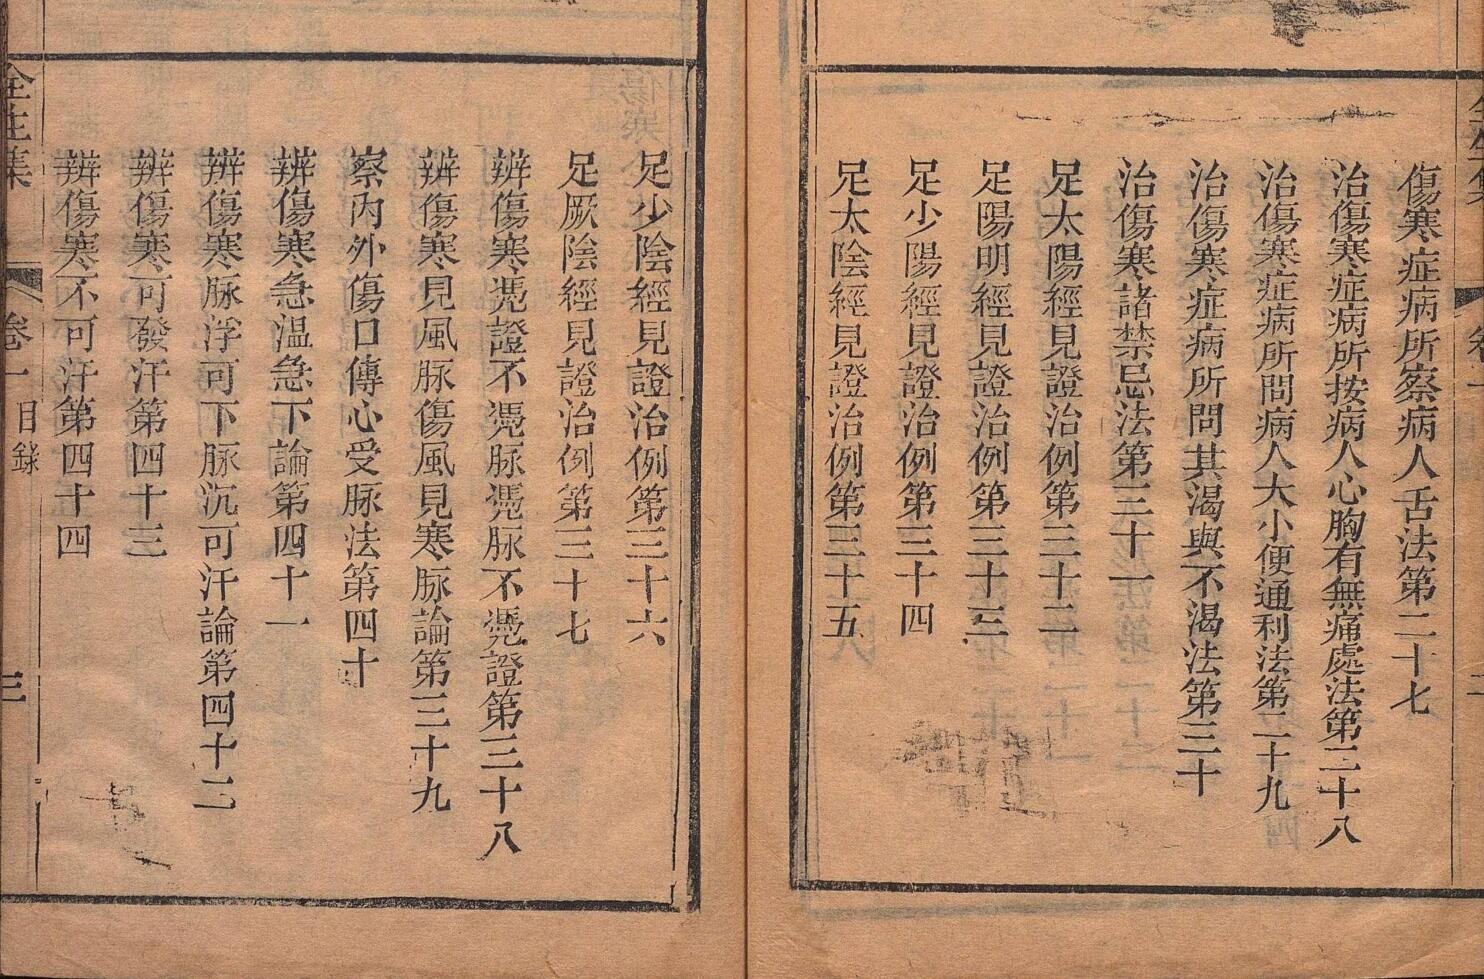 傷寒症病所察病人舌法第二十七
治傷寒症病所按病人心胸有無痛處法第二十八
治傷寒症病所問病人大小便通利法第二十九
治傷寒症病所問其渴與不渴法第三十
治傷寒諸禁忌法第三十一
足太陽經見證治例第三十二
足陽明經見證治例第三十三
足少陽經見證治例第三十四
足太陰經見證治例第三十五
足少陰經見證治例第三十六
足厥陰經見證治例第三十七
辨傷寒憑證不憑脉憑脉不憑證第三十八
辨傷寒見風脉傷風見寒脉論第三十九
察內外傷口傳心受脉法第四十
辨傷寒急溫急下論第四十一
辨傷寒脉浮可下脉沉可汗論第四十二
辨傷寒可發汗第四十三
辨傷寒不可汗第四十四
全生集 卷一 目錄 三